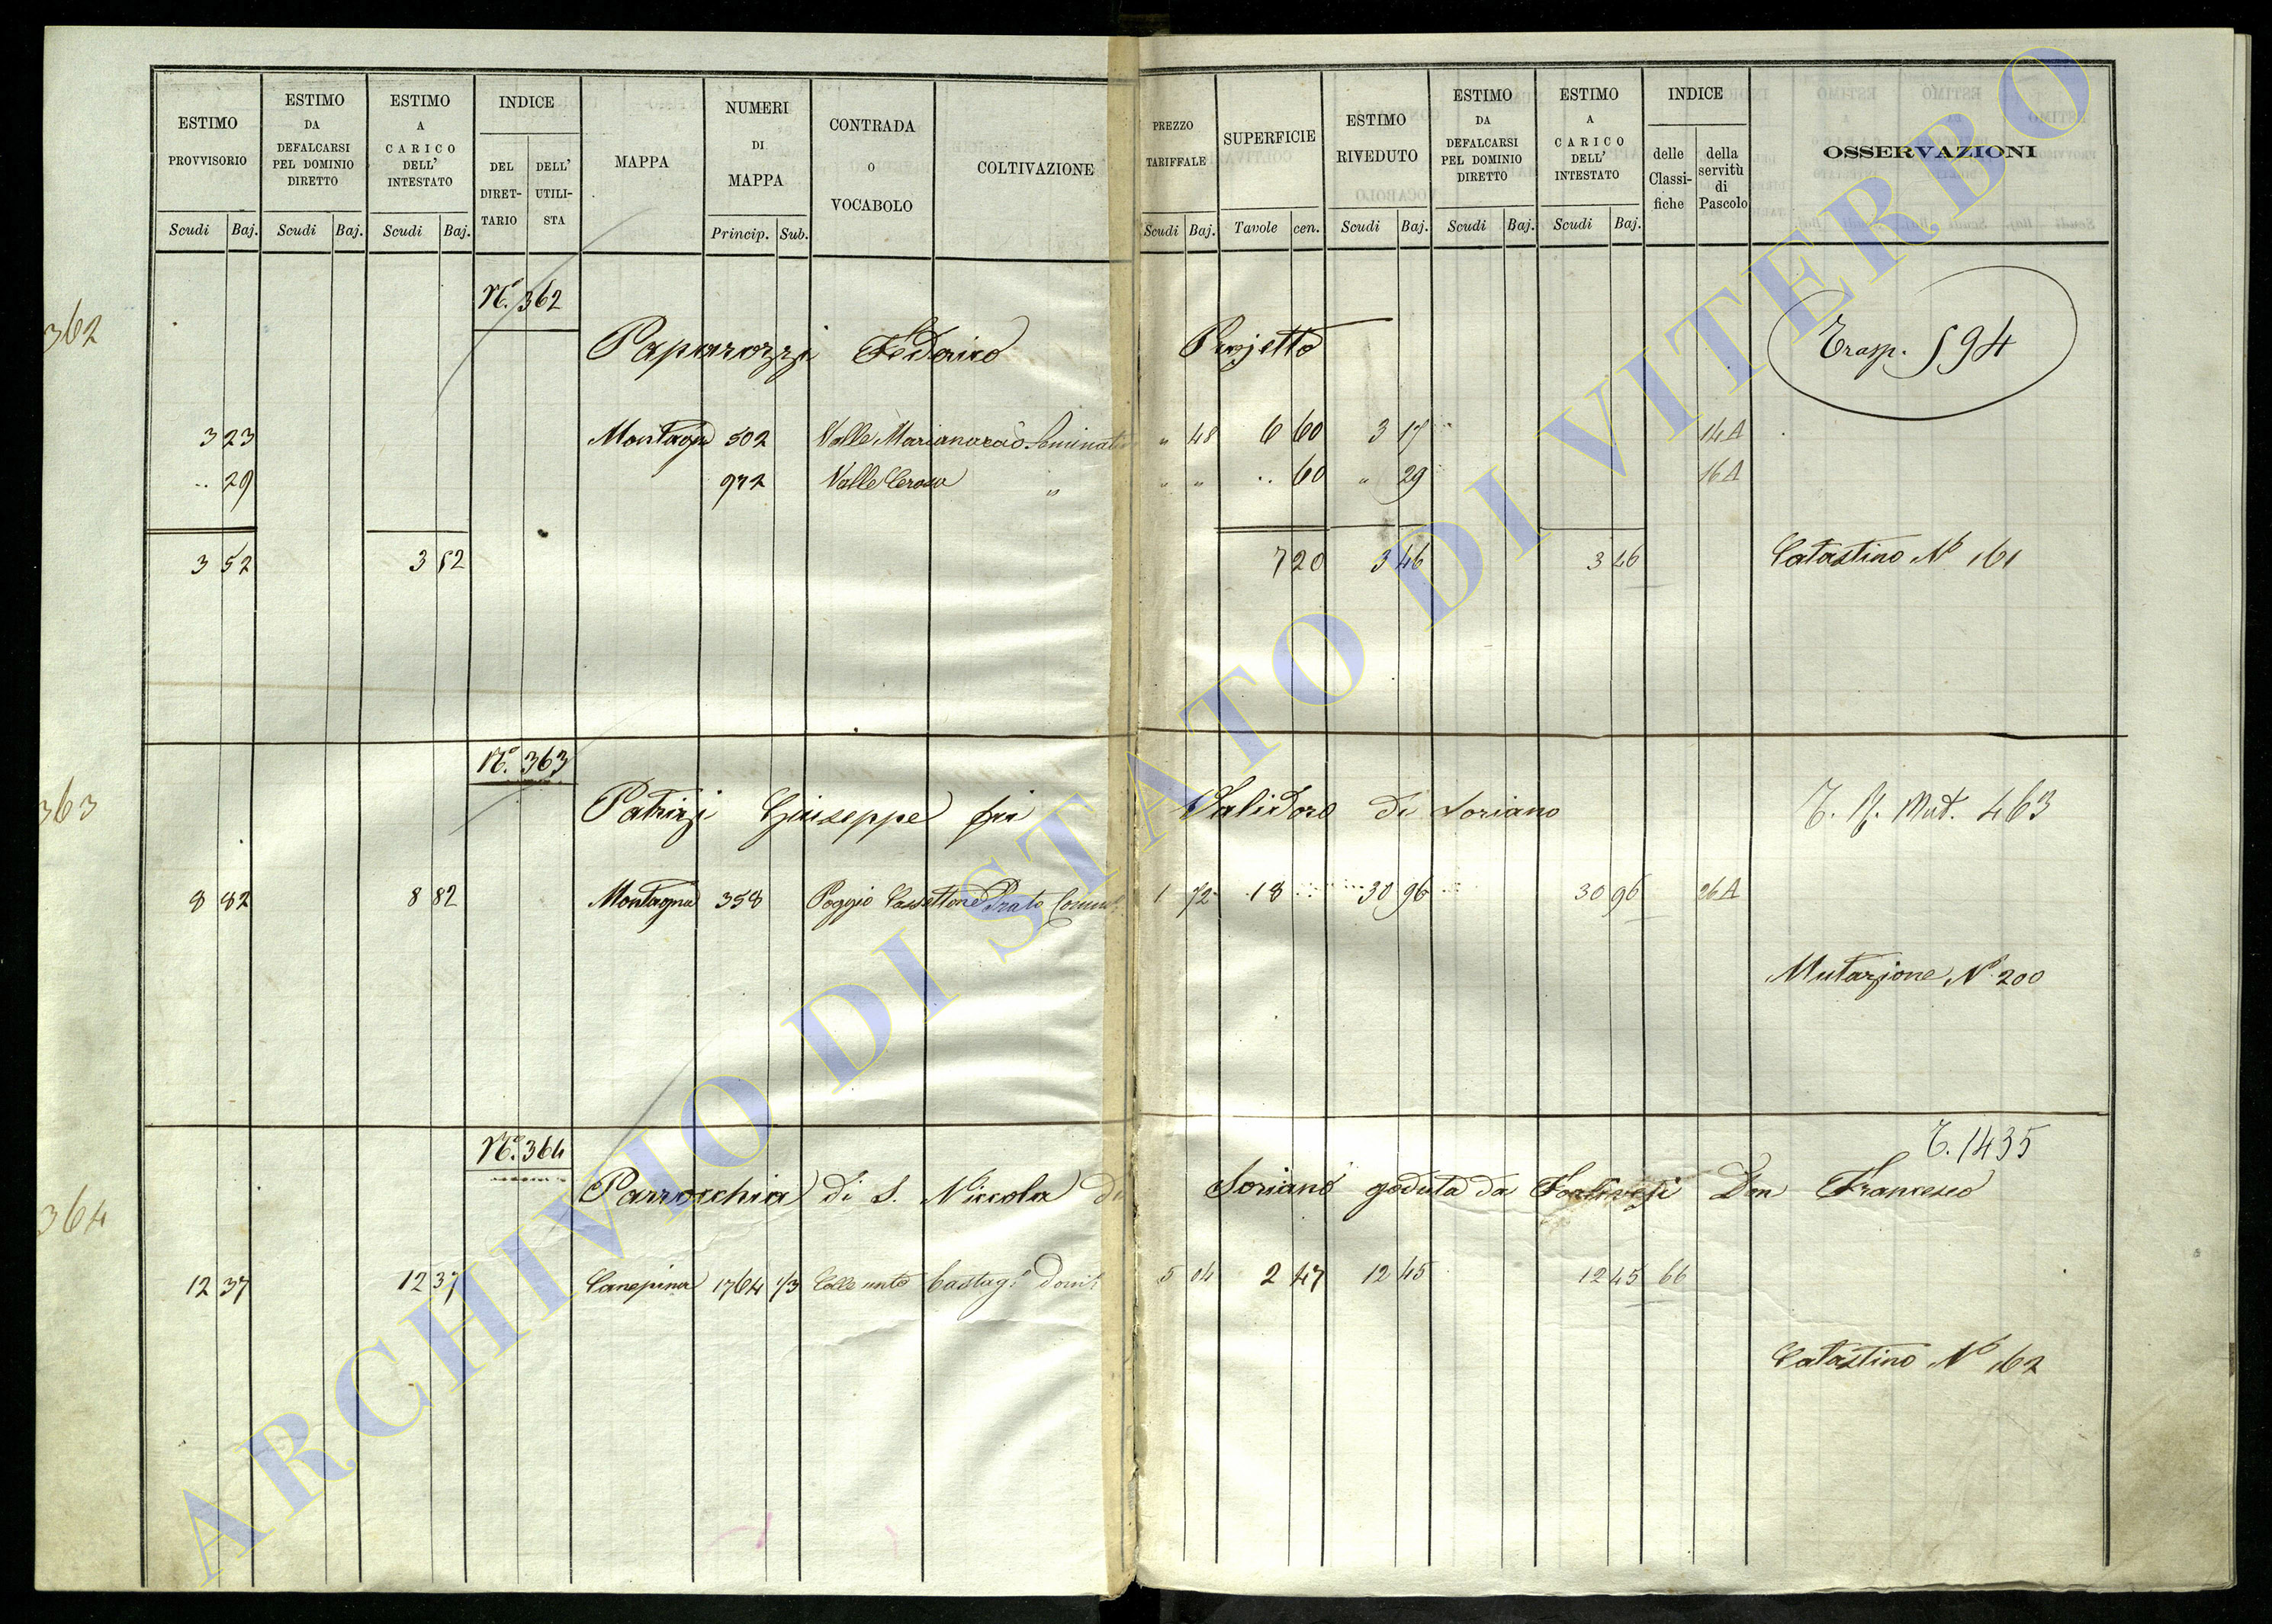 ESTIMO PROVVISORIO Scudi Baj.
ESTIMO DA DEFALCARSI PEL DOMINIO DIRETTO Scudi Baj.
ESTIMO A CARICO DELL' INTESTATO Scudi Baj.
INDICE DEL DIRET-TARIO DELL' UTILI-STA
MAPPA
NUMERI DI MAPPA Princip. Sub.
CONTRADA O VOCABOLO
COLTIVAZIONE
PREZZO TARIFFALE Scudi Baj.
SUPERFICIE Tavole cen.
ESTIMO RIVEDUTO Scudi Baj.
ESTIMO DA DEFALCARSI PEL DOMINIO DIRETTO Scudi Baj.
ESTIMO A CARICO DELL' INTESTATO Scudi Baj.
INDICE delle Classi-fiche della servitù di Pascolo
OSSERVAZIONI
362 N.° 362
Paparozzi Federico Projetto Trasp. 594
3 23 Montagna 502 Valle " 48 6 60 3 17 14A
.. 29 972 Valle Cerosa " " " .. 60 " 29 16A
3 52 3 52 7 20 3 46 3 46 Catastino N° 161
363 N.° 363
Patrizi Giuseppe fu Validoro di Soriano Mut. 463
8 82 8 82 Montagna 358 Poggio Cassettone Prato 1 72 18 .. 30 96 30 96 26A
Mutazione N° 200
364 N.° 364 T. 1435
Parrocchia di S. Niccola di Soriano goduta da Don Francesco
12 37 12 37 Canepina 1764 1/3 Colle unto Castag. 5 04 2 47 12 45 12 45 66
Catastino N° 162
ARCHIVIO DI STATO DI VITERBO